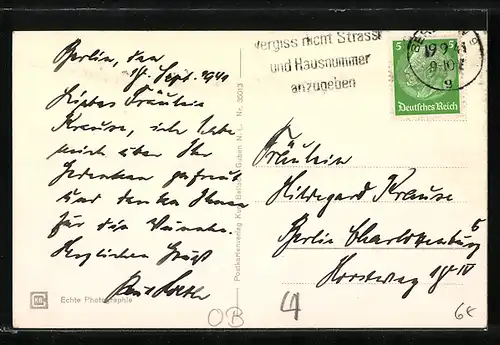 Berlin, den
18. Sept. 1941
Liebes Fräulein
Krause, ich habe
mich über Ihr
Gedenken gefreut
und danke Ihnen
für die Wünsche.
Herzlichen Gruß
Echte Photographie
Postkartenverlag Kurt Guben N. L. Nr.
vergiss nicht Strasse
und Hausnummer
anzugeben
5 5
Deutsches Reich
9
Fräulein
Hildegard Krause
Berlin Charlottenburg 5
Horstweg IV
OB
4
6€